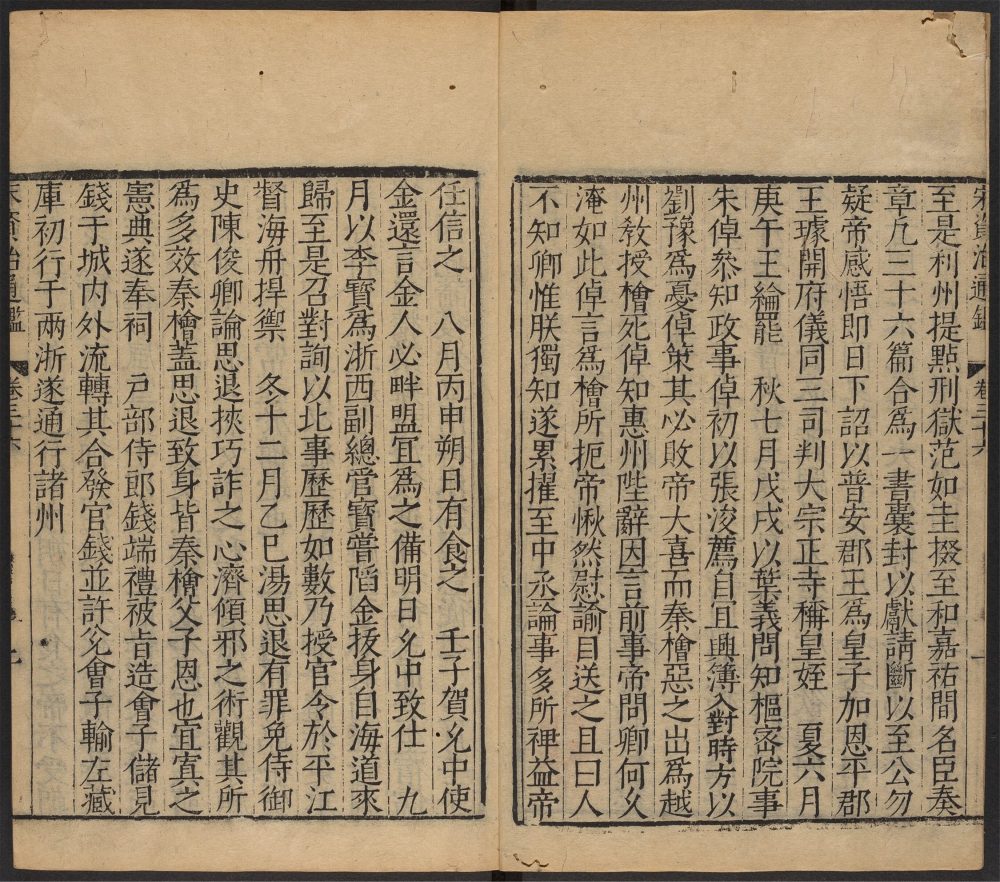 宋資治通鑑 卷三十六
至是利州提點刑獄范如圭掇至和嘉祐間名臣奏
章凢三十六篇合爲一書囊封以獻請斷以至公勿
疑帝感悟即日下詔以普安郡王爲皇子加恩平郡
王璩開府儀同三司判大宗正寺稱皇姪 夏六月
庚午王綸罷 秋七月戊戌以葉義問知樞宻院事
朱倬叅知政事倬初以張浚薦自宜興簿入對時方以
劉豫爲憂倬策其必敗帝大喜而秦檜惡之出爲越
州敎授檜死倬知惠州陛辭因言前事帝問卿何乆
淹如此倬言爲檜所扼帝愀然慰諭目送之且曰人
不知卿惟朕獨知遂累擢至中丞論事多所裨益帝
任信之 八月丙申朔日有食之 壬子賀允中使
金還言金人必畔盟宜爲之備明日允中致仕 九
月以李寳爲浙西副總管寳嘗䧟金拔身自海道來
歸至是召對詢以北事歷歷如數乃授官令於平江
督海舟捍禦 冬十二月乙巳湯思退有罪免侍御
史陳俊卿論思退挾巧詐之心濟傾邪之術觀其所
爲多效秦檜蓋思退致身皆秦檜父子恩也宜寘之
憲典遂奉祠 戸部侍郎錢端禮被㫖造會子儲見
錢于城内外流轉其合發官錢並許兊會子輸左藏
庫初行于兩浙遂通行諸州
宋資治通鑑 卷三十六